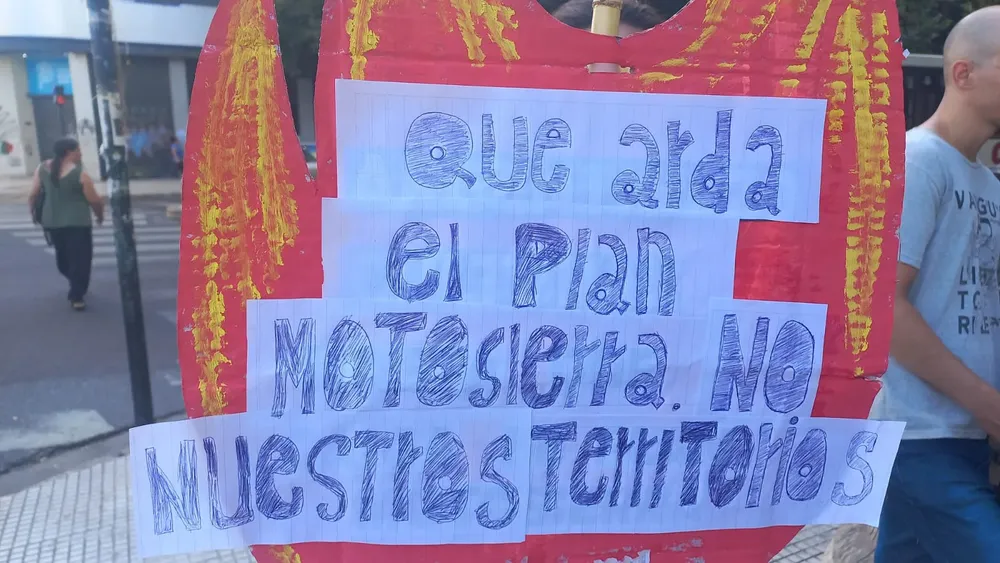 Que arda
el Plan
MOTOsierra. NO
NUestros TerriTorios